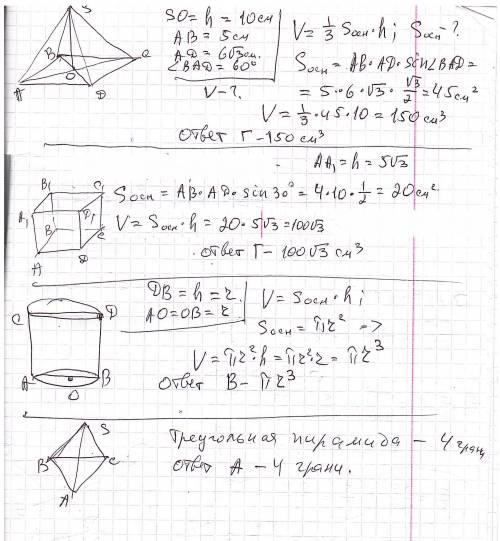 S
B
C
O
A
D
SO = h = 10 см
AB = 5 см
AD = 6√3 см.
∠BAD = 60°
V - ?
V = 1/3 Sосн · h; Sосн - ?
Sосн = AB · AD · sin∠BAD =
= 5 · 6 · √3 · √3/2 = 45 см²
V = 1/3 · 45 · 10 = 150 см³
ответ Г - 150 см³
AA₁ = h = 5√3
B₁ C₁
A₁ D₁
B C
A D
Sосн = AB · AD · sin 30° = 4 · 10 · 1/2 = 20 см²
V = Sосн · h = 20 · 5√3 = 100√3
ответ Г - 100√3 см³
C D
A B
O
DB = h = r.
AO = OB = r
V = Sосн · h;
Sосн = πr² =>
V = πr² · h = πr² · r = πr³
ответ В - πr³
S
B C
A
Треугольная пирамида - 4 грани
ответ А - 4 грани.